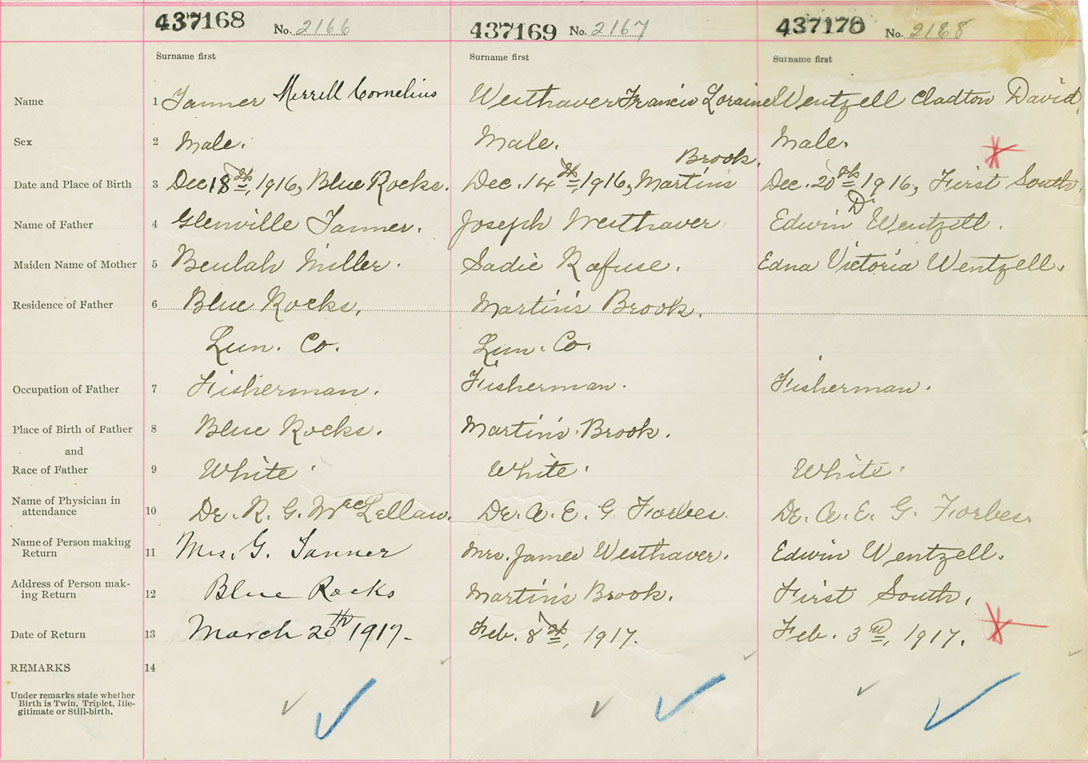 437168 No. 2166 437169 No. 2167 437170 No. 2168
Surname first Surname first Surname first
Name 1 Tanner Merrill Cornelius Westhaver Francis Loraine Wentzell Cladton David
Sex 2 Male. Male. Male.
Brook.
Date and Place of Birth 3 Dec 18th, 1916, Blue Rocks. Dec. 14th, 1916, Martin's Dec. 20th 1916, First South.
D
Name of Father 4 Glenville Tanner. Joseph Westhaver Edwin Wentzell.
Maiden Name of Mother 5 Beulah Miller. Sadie Rafuse. Edna Victoria Wentzell.
Residence of Father 6 Blue Rocks. Martin's Brook.
Lun. Co. Lun. Co.
Occupation of Father 7 Fisherman. Fisherman. Fisherman.
Place of Birth of Father 8 Blue Rocks. Martin's Brook.
and
Race of Father 9 White. White. White.
Name of Physician in
attendance 10 Dr. R. G. McLellan. Dr. A. E. G. Forbes. Dr. A. E. G. Forbes.
Name of Person making
Return 11 Mrs. G. Tanner Mrs. James Westhaver. Edwin Wentzell.
Address of Person mak-
ing Return 12 Blue Rocks Martin's Brook. First South.
Date of Return 13 March 20th 1917. Feb. 8th, 1917. Feb. 3rd, 1917.
REMARKS 14
Under remarks state whether
Birth is Twin, Triplet, Ille-
gitimate or Still-birth.